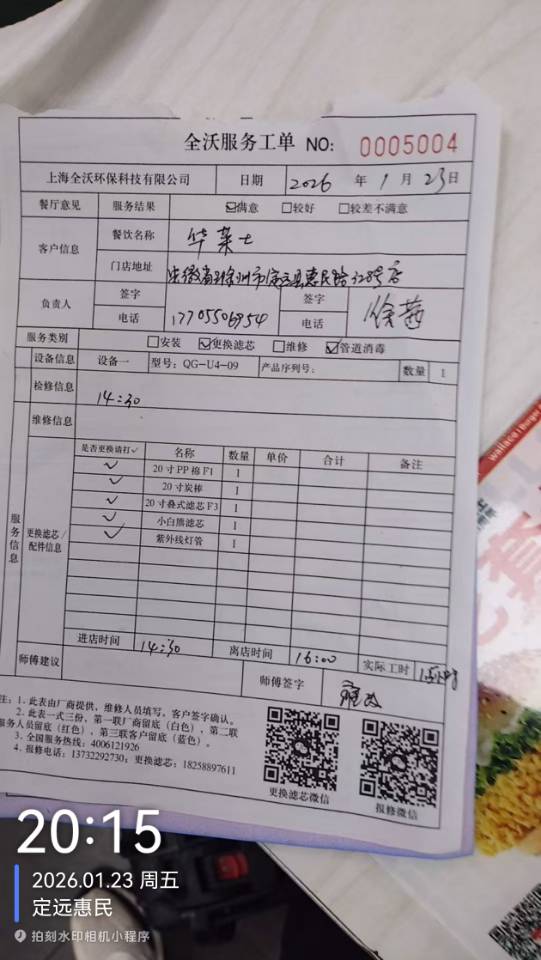 全沃服务工单 NO: 0005004
上海全沃环保科技有限公司 日期 2026 年 1 月 23 日
餐厅意见 服务结果 ☑满意 □较好 □较差不满意
客户信息 餐饮名称 华莱士
门店地址 安徽省滁州市定远县惠民路128号店
负责人 签字 签字
电话 17705506954 电话 徐茜
服务类别 □安装 ☑更换滤芯 □维修 ☑管道消毒
设备信息 设备一 型号：QG-U4-09 产品序列号： 数量 1
检修信息 14:30
维修信息
服务信息 更换滤芯/配件信息
是否更换请打✓ 名称 数量 单价 合计 备注
✓ 20寸PP棉F1 1
✓ 20寸炭棒 1
✓ 20寸叠式滤芯F3 1
✓ 小白熊滤芯 1
✓ 紫外线灯管 1
进店时间 14:30 离店时间 16:00 实际工时 1.5小时
师傅建议 师傅签字
注：1. 此表由厂商提供，维修人员填写，客户签字确认。
2. 此表一式三份，第一联厂商留底（白色），第二联
服务人员留底（红色），第三联客户留底（蓝色）。
3. 全国服务热线：4006121926
4. 报修电话：13732292730；更换滤芯：18258897611
更换滤芯微信 报修微信
wallace | Burger
20:15
2026.01.23 周五
定远惠民
拍刻水印相机小程序